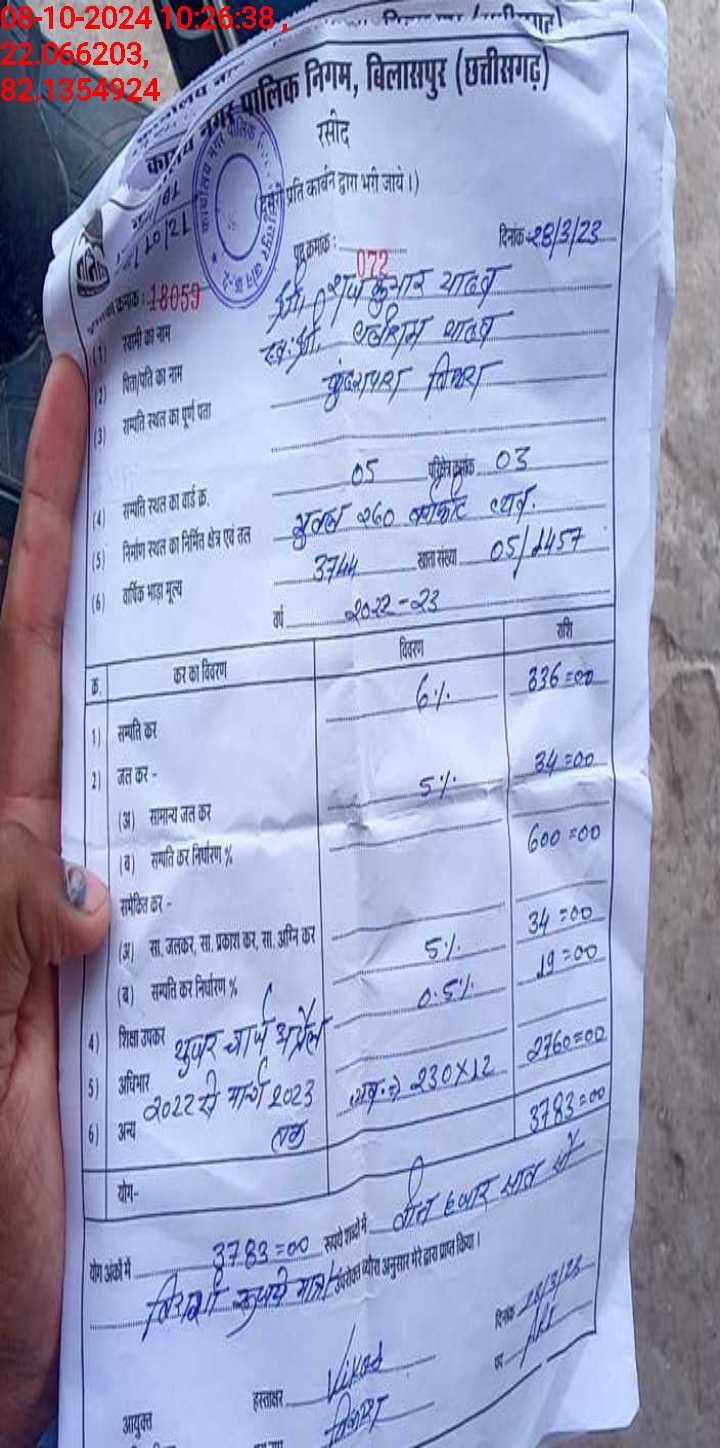 08-10-2024 10:26:38 ,
22.066203,
82.1354924
नगर पालिक निगम, बिलासपुर (छत्तीसगढ़)
रसीद
(दूसरी प्रति कार्बन द्वारा भरी जाये।)
072 दिनांक 28/3/23
क्रमांक : 18059
(1) स्वामी का नाम श्री कुमार यादव
(2) पिता/पति का नाम स्व. श्री यादव
(3) सम्पत्ति स्थल का पूर्ण पता
(4) सम्पत्ति स्थल का वार्ड क्र. 05 03
(5) निर्माण स्थल का निर्मित क्षेत्र एवं तल भूतल 260
(6) वार्षिक भाड़ा मूल्य 3744 खाता संख्या 05/1457
वर्ष 2022-23
क्र. कर का विवरण विवरण राशि
1) सम्पत्ति कर 6% 336=00
2) जल कर -
(अ) सामान्य जल कर 5% 34=00
(ब) सम्पत्ति कर निर्धारण %
समेकित कर - 600=00
(अ) सा. जलकर, सा. प्रकाश कर, सा. अग्नि कर
(ब) सम्पत्ति कर निर्धारण % 5% 34=00
4) शिक्षा उपकर 0.5% 19=00
5) अधिभार यूजर चार्ज अप्रैल
6) अन्य 2022 से मार्च 2023 तक 230X12 2760=00
योग- 3783=00
योग अंकों में 3783=00 रूपये शब्दों में तीन हजार सात सौ
तिरासी रूपये मात्र उपरोक्त ब्यौरा अनुसार मेरे द्वारा प्राप्त किया।
दिनांक 28/3/23
आयुक्त हस्ताक्षर Vikas पद